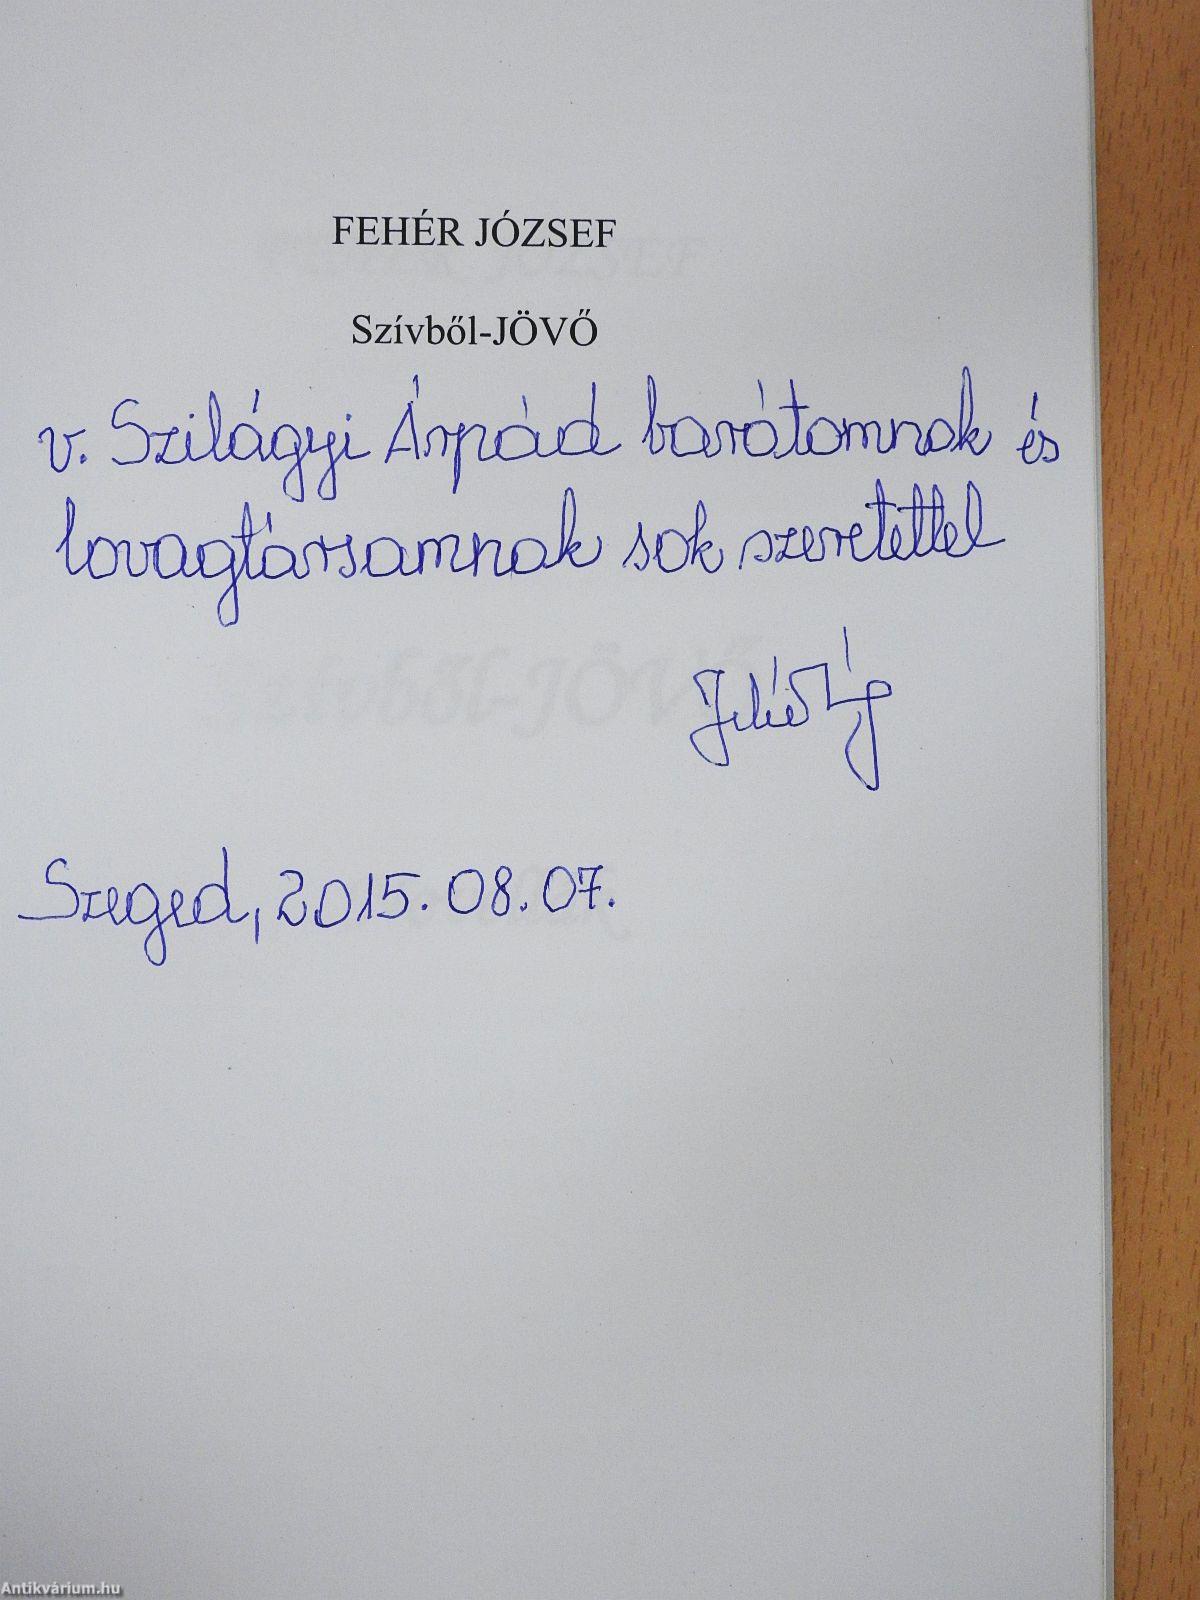 FEHÉR JÓZSEF
Szívből-JÖVŐ
v. Szilágyi Árpád barátomnak és
lovagtársamnak sok szeretettel
Szeged, 2015. 08. 07.
Antikvárium.hu